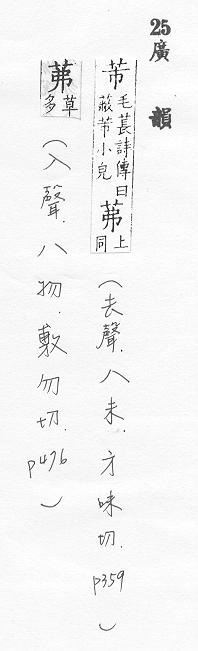 25廣韻
芾毛萇詩傳曰蔽芾小皃茀上同(去聲.八未.方味切.p359)
茀草多(入聲.八物.敷勿切.p476)